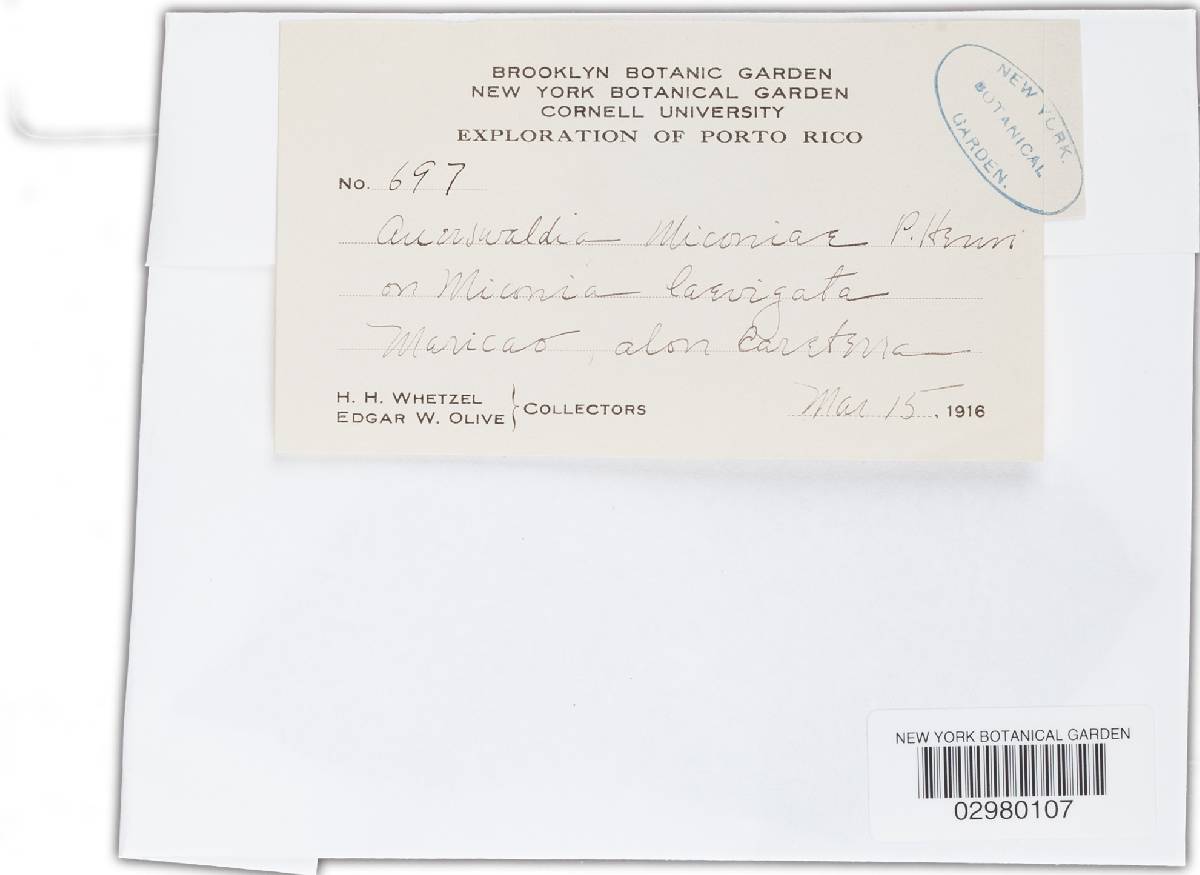 BROOKLYN BOTANIC GARDEN
NEW YORK BOTANICAL GARDEN
CORNELL UNIVERSITY
EXPLORATION OF PORTO RICO
NEW YORK
BOTANICAL
GARDEN.
No. 697
Auerswaldia Miconiae P. Henn
on Miconia laevigata
Maricao, alon Careterra
H. H. WHETZEL
EDGAR W. OLIVE } COLLECTORS
Mar 15, 1916
NEW YORK BOTANICAL GARDEN
02980107